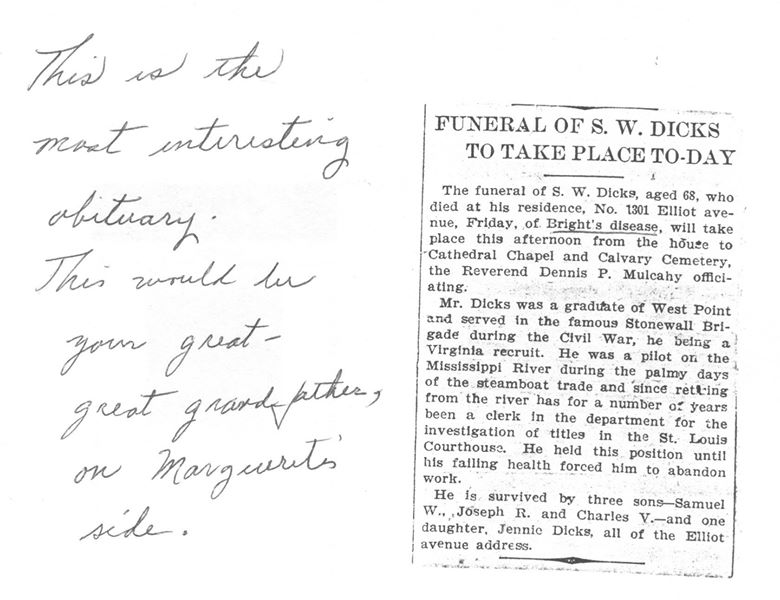 This is the
most interesting
obituary.
This would be
your great-
great grandfather,
on Marguerite's
side.
FUNERAL OF S. W. DICKS
TO TAKE PLACE TO-DAY
The funeral of S. W. Dicks, aged 68, who
died at his residence, No. 1301 Elliot ave-
nue, Friday, of Bright's disease, will take
place this afternoon from the house to
Cathedral Chapel and Calvary Cemetery,
the Reverend Dennis P. Mulcahy offici-
ating.
Mr. Dicks was a graduate of West Point
and served in the famous Stonewall Bri-
gade during the Civil War, he being a
Virginia recruit. He was a pilot on the
Mississippi River during the palmy days
of the steamboat trade and since retiring
from the river has for a number of years
been a clerk in the department for the
investigation of titles in the St. Louis
Courthouse. He held this position until
his failing health forced him to abandon
work.
He is survived by three sons—Samuel
W., Joseph R. and Charles V.—and one
daughter, Jennie Dicks, all of the Elliot
avenue address.